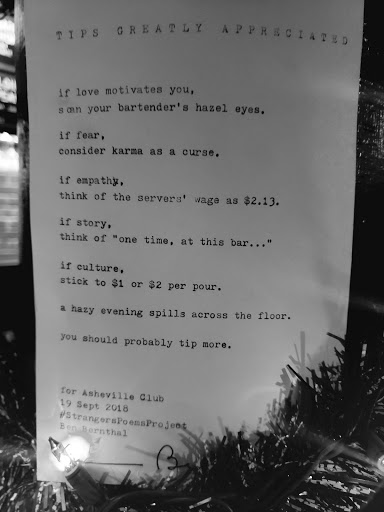 TIPS GREATLY APPRECIATED
if love motivates you,
scan your bartender's hazel eyes.
if fear,
consider karma as a curse.
if empathy,
think of the servers' wage as $2.13.
if story,
think of "one time, at this bar..."
if culture,
stick to $1 or $2 per pour.
a hazy evening spills across the floor.
you should probably tip more.
for Asheville Club
19 Sept 2018
#StrangersPoemsProject
Ben Bernthal
B